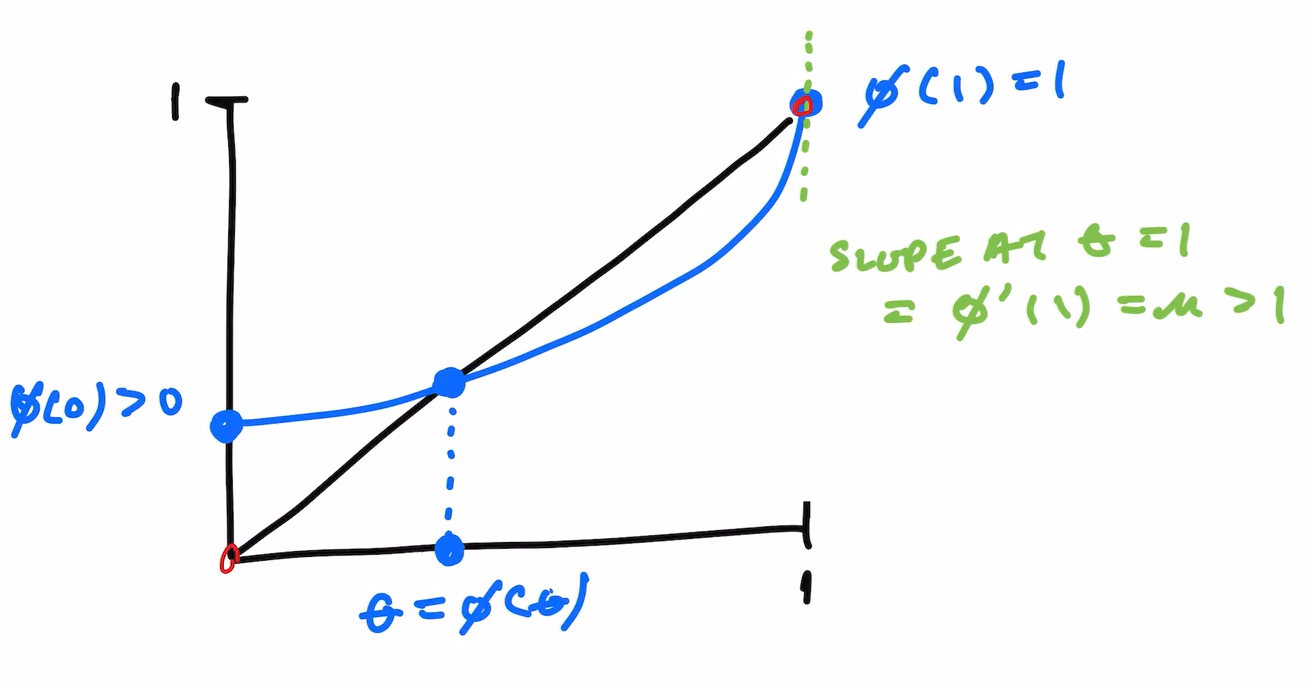 1
φ(1) = 1
SLOPE AT θ = 1
= φ'(1) = μ > 1
φ(0) > 0
1
θ = φ(θ)